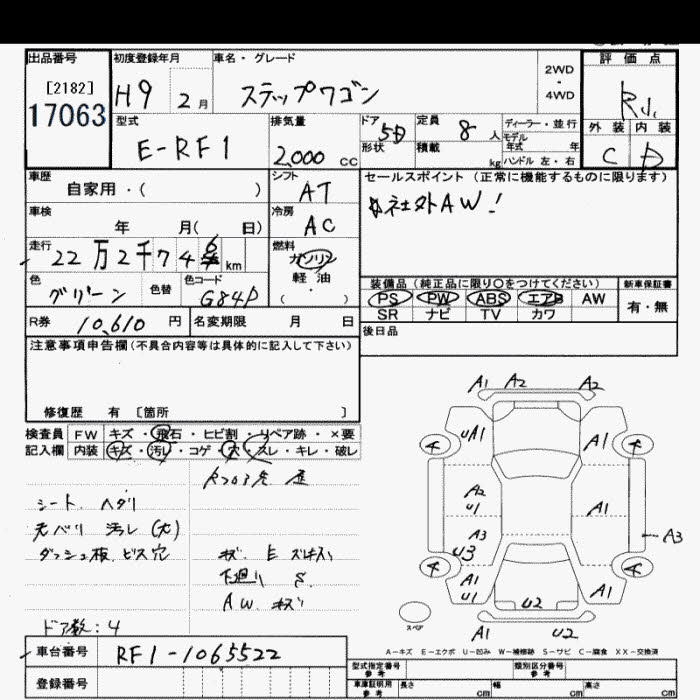 出品番号 初度登録年月 車名・グレード 評価点
[2182] 2WD
17063 H9 2月 ステップワゴン ・ R1.
4WD
型式 排気量 ドア 5D 定員 8人 ディーラー・並行 外装 内装
E-RF1 2,000cc 形状 積載 kg モデル年式 年 C D
ハンドル 左・右
車歴 シフト セールスポイント (正常に機能するものに限ります)
自家用・( ) AT 社外AW!
車検 冷房
年 月( 日) AC
走行 燃料
22万2千74 km ガソリン
軽油
色 色替 色コード ( ・ ) 装備品(純正品に限り○をつけてください) 新車保証書
グリーン G84P PS PW ABS エアB AW 有・無
SR ナビ TV カワ
R券 10,610円 名変期限 月 日 後日品
注意事項申告欄(不具合内容等は具体的に記入して下さい)
修復歴 有 [箇所 ]
検査員 FW キズ・飛石・ヒビ割・リペア跡・×要
記入欄 内装 キズ・汚レ・コゲ・穴・スレ・キレ・破レ
シート ヘタリ
天バリ 汚レ(大)
ダッシュ板 ビス穴
キズ E
下廻り S
AW キズ
ドア数:4
A1 A2 A2
UA1 A1
A2
U1 A1
A3 A3
U3
A1
U1 U2 A1
スペア
A1 U2
A-キズ E-エクボ U-凹み W-補修跡 S-サビ C-腐食 XX-交換済
車台番号 RF1-1065522
型式指定番号 参考 類別区分番号 参考
登録番号
車庫証明用 参考 長さ cm 幅 cm 高さ cm